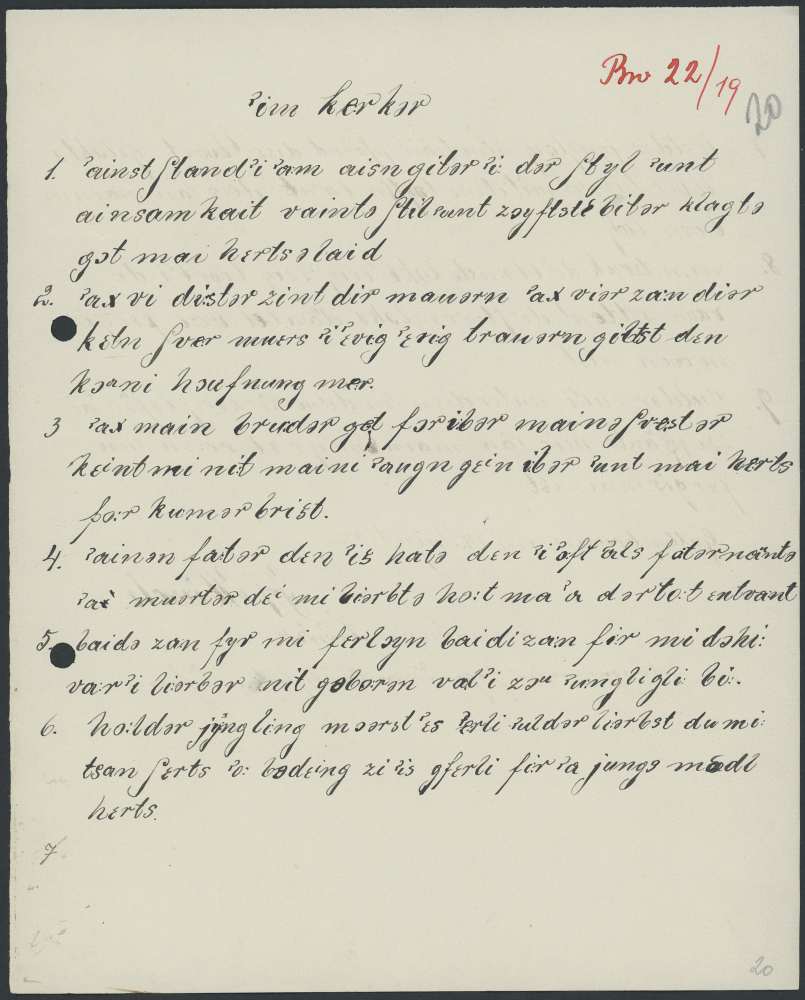 Bw 22/19
20
ˀim kɛrkər
1. ˀainst ſtand ˀi ˀam aisn gitər ˀi: dər ſtyl ˀunt
ainsamkait vaintə ſtil ˀunt zɔyftstɛ bitər klagtə
gɔt mai hɛrtsəlaid
2. ˀax vi distər zint dir mauərn ˀax viər za:n diər
ketn ſvær muers ˀi ˀevig ˀɛrig trauərn giltst den
kɔani hɔufnung mer.
3 ˀax main brudər get fəribər mainə ſvestər
keint mi nit maini ˀaugn gein ibər ˀunt mai herts
fɔ:r kumər brist.
4. ˀainən fatər den ˀis hatə den ˀi ˀɔft ˀals fatər nantə
ˀax muərtər dei mi liərbtə ho:t ma ˀa dər to:t entvant
5. baidə zan fyr mi ferlɔyn baidi zan fir mi dəhi:
va:r ˀi liərbər nit gəborən val ˀi zɔu ˀungligli bi:.
6. ho:ldər jyngling mɔərst ˀes ˀerli ˀuldər liərbst du mi:
tsan ſerts ˀo: bədeing zi ˀis gferli fir ˀa jungs madl
herts.
7
20